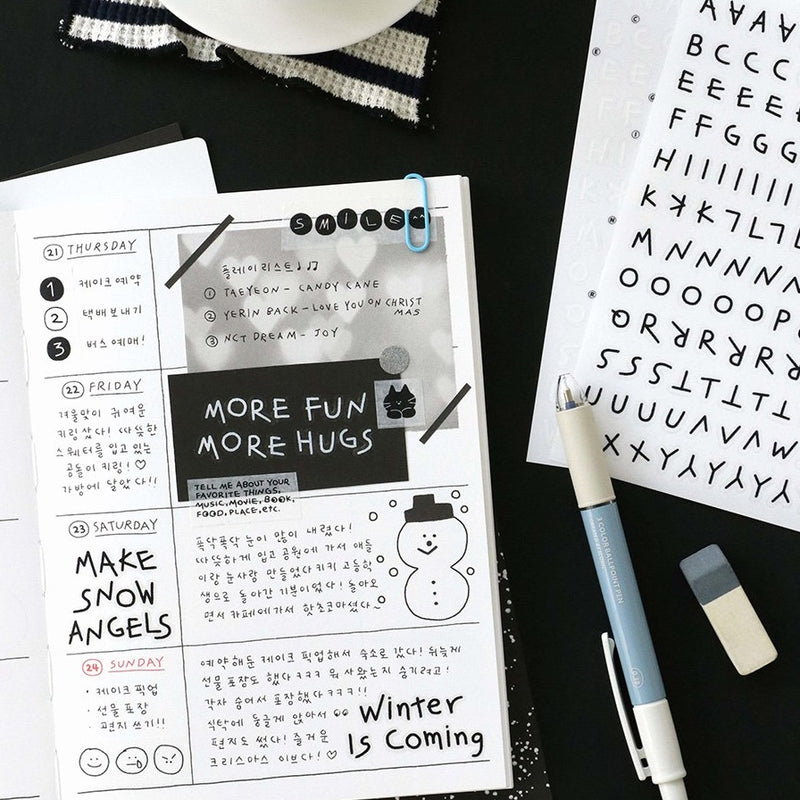 SMILE
21 THURSDAY
1 케이크 예약
2 택배 보내기
3 버스 예매!
플레이리스트♩♫
① TAEYEON - CANDY CANE
② YERIN BACK - LOVE YOU ON CHRIST
MAS
③ NCT DREAM - JOY
22 FRIDAY
겨울맞이 귀여운
키링 샀다! 따뜻한
스웨터를 입고 있는
곰돌이 키링! ♡
가방에 달았다!!
MORE FUN
MORE HUGS
TELL ME ABOUT YOUR
FAVORITE THINGS,
MUSIC, MOVIE, BOOK,
FOOD, PLACE, etc.
23 SATURDAY
MAKE
SNOW
ANGELS
폭닥폭닥 눈이 많이 내렸다!
따뜻하게 입고 공원에 가서 애들
이랑 눈사람 만들었다 키키 고등학
생으로 돌아간 기분이었다! 돌아오
면서 카페에 가서 핫초코 마셨다~
24 SUNDAY
· 케이크 픽업
· 선물 포장
· 편지 쓰기!!
예약해둔 케이크 픽업해서 숙소로 갔다! 뒤늦게
선물 포장도 했다 ㅋㅋㅋ 뭐 샀는지 숨기려고!
각자 숨어서 포장했다 ㅋㅋㅋ!!
식탁에 둥글게 앉아서
편지도 썼다! 즐거운
크리스마스 이브다! ♡
Winter
Is Coming
A A A A
B C C C C
E E E E E
F F G G G
H I I I I I I
K K K L L L
M N N N N N
O O O O O P
Q R R R R R
S S T T T T S
U U U V V W
X X Y Y Y Y Y
3 COLOR BALLPOINT PEN